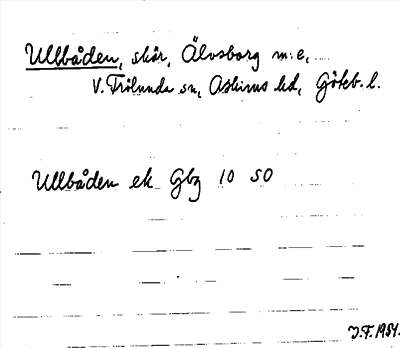 Ullbåden, skär, Älvsborg m:e,
V. Frölunda sn, Askims hd, Göteb. l.
Ullbåden ek Gbg 10 SO
J.F. 1954.